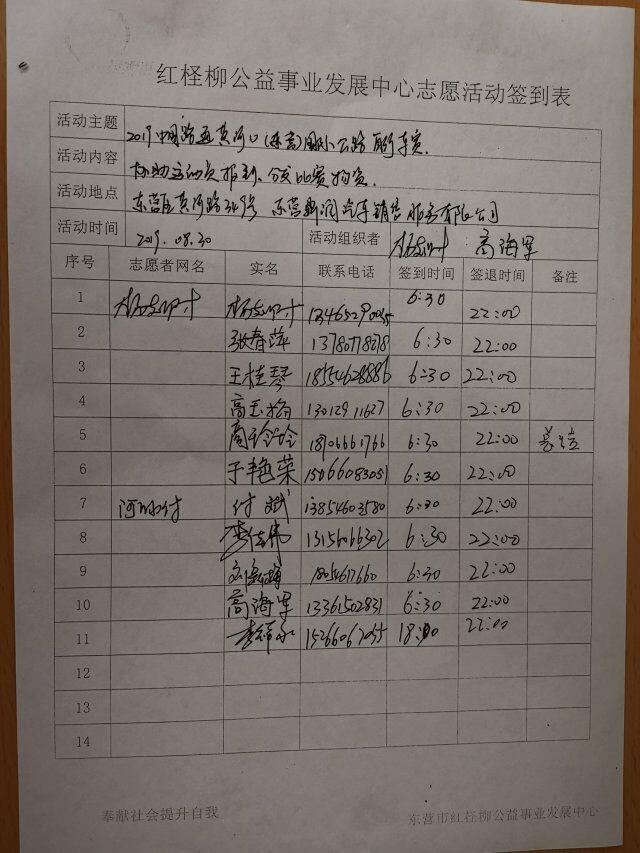 红柽柳公益事业发展中心志愿活动签到表
活动主题 2019中国路亚黄河口(东营)国际公路
活动内容 协助运动员报到、分发比赛物资.
活动地点 东营区黄河路349号 东营新润汽车销售服务有限公司
活动时间 2019.08.30 活动组织者 高海军
序号 志愿者网名 实名 联系电话 签到时间 签退时间 备注
1 6:30 22:00
2 张春萍 13780778278 6:30 22:00
3 王桂琴 18554628886 6:30 22:00
4 高玉梅 13012911627 6:30 22:00
5 18706661766 6:30 22:00
6 于艳荣 15066083051 6:30 22:00
7 付斌 13854603580 6:30 22:00
8 13156066302 6:30 22:00
9 6:30 22:00
10 高海军 13361502831 6:30 22:00
11 15266067055 18:00 22:00
12
13
14
奉献社会提升自我
东营市红柽柳公益事业发展中心